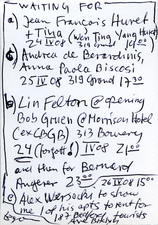 WAITING FOR
a) Jean François Huret
+ Tina (Wen Ting Yang Huret)
24 IV 08 319 Grand 16 00
d) Andrea de Berardinis,
Anna Paola Biscosi
25 IV 08 319 Grand 17 30
b) Lin Felton @ opening
Bob Gruen @ Morrison Hotel
(ex CBGB) 313 Bowery
24 IV 08 21 00
and then for Bernard
23 00 26 IV 08 15 00
e) Alex to show
me 1 of his apts to rent for
187 tourists